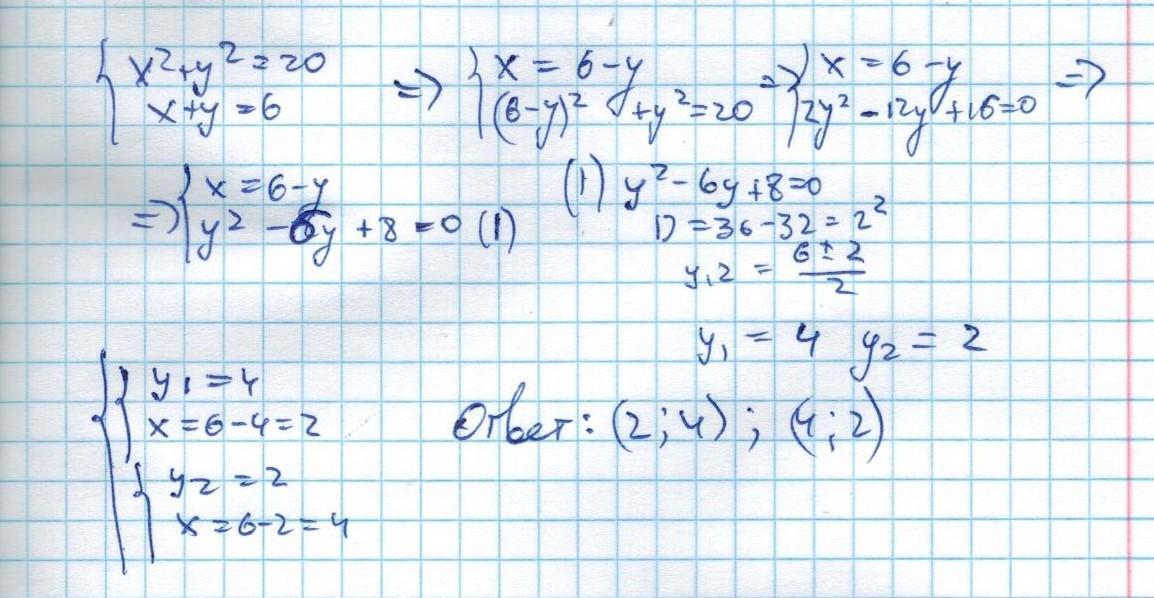 { x²+y²=20 x+y=6 => { x = 6-y (6-y)² +y²=20 => { x = 6-y 2y² -12y +16=0 =>
=> { x =6-y y² -6y +8=0 (1)
(1) y²-6y+8=0
D =36-32=2²
y1,2 = (6±2)/2
y₁ = 4 y₂ = 2
{ y₁ =4 x=6-4=2
{ y₂ =2 x=6-2=4
Ответ: (2;4); (4;2)